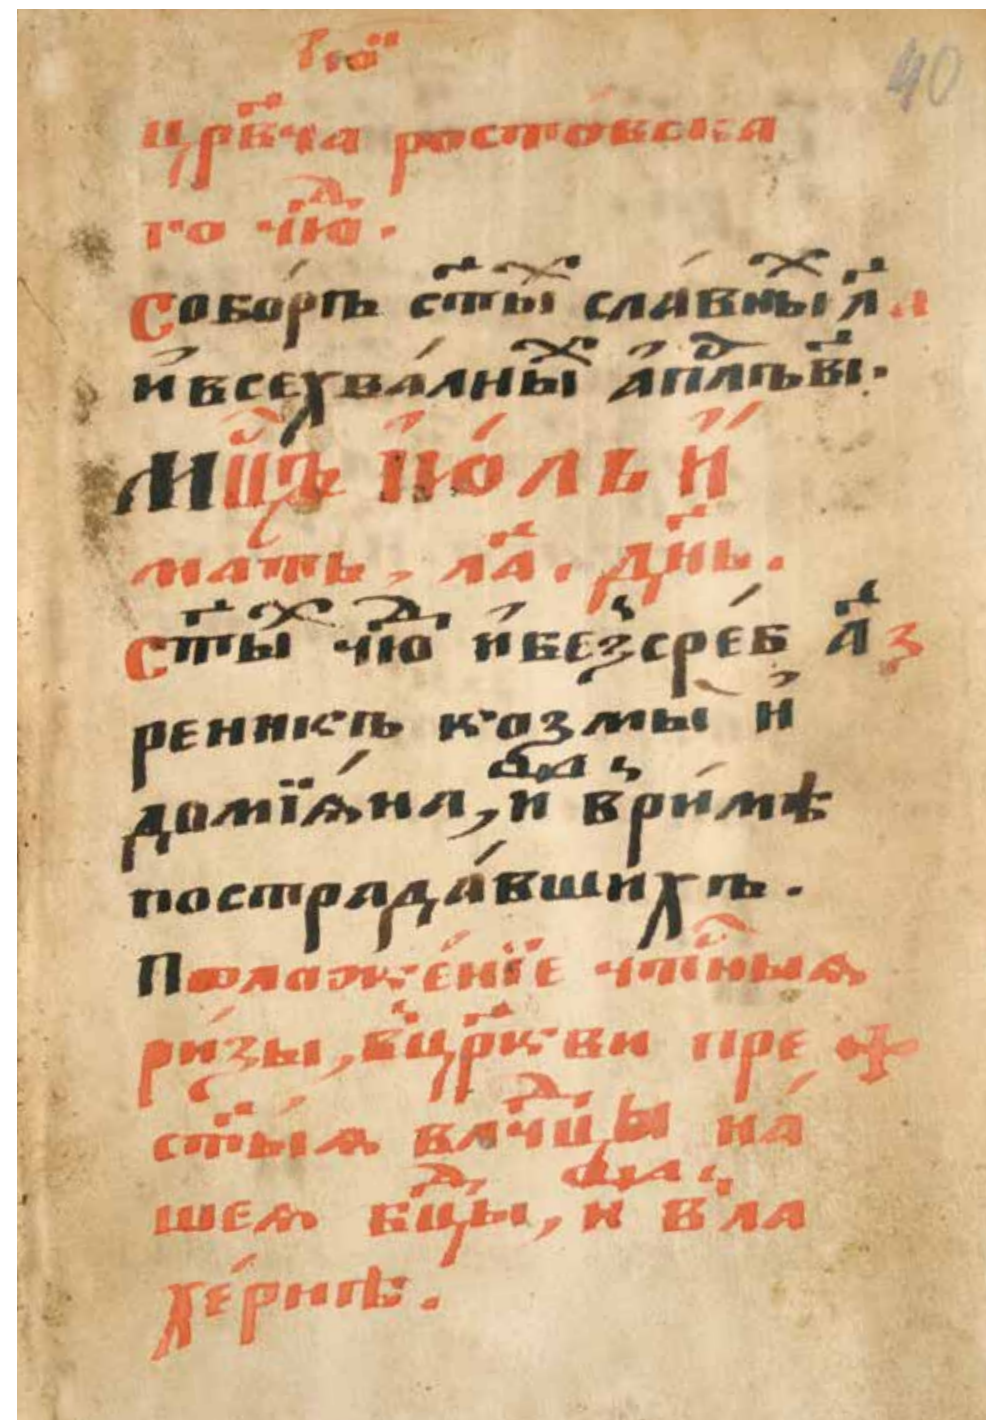 40
црⷭ҇вча росто́вска
го чю⁣ⷣ.
Собо́ръ ст҃ыⷯ сла́вныⷯ л҃ а
и҆всехва́лныⷯ а҆пⷭ҇лъв҃і.
Мцⷭ҇ъ ію́ль и҆
мать. ла҃. дн҃ь.
Ст҃ыⷯ чюⷣ и҆безсре́б а҃ з
реникъ козмы и҆
домїѧ́на, и҆ в ри́мѣ
пострада́вшихъ.
Положе́нїе чтⷭ҇ныѧ
ри́зы, в цр҃кви пре
ст҃ы́ѧ влⷣчцы на́
шеѧ бцⷣы, и҆ в ла
хе́рнѣ.